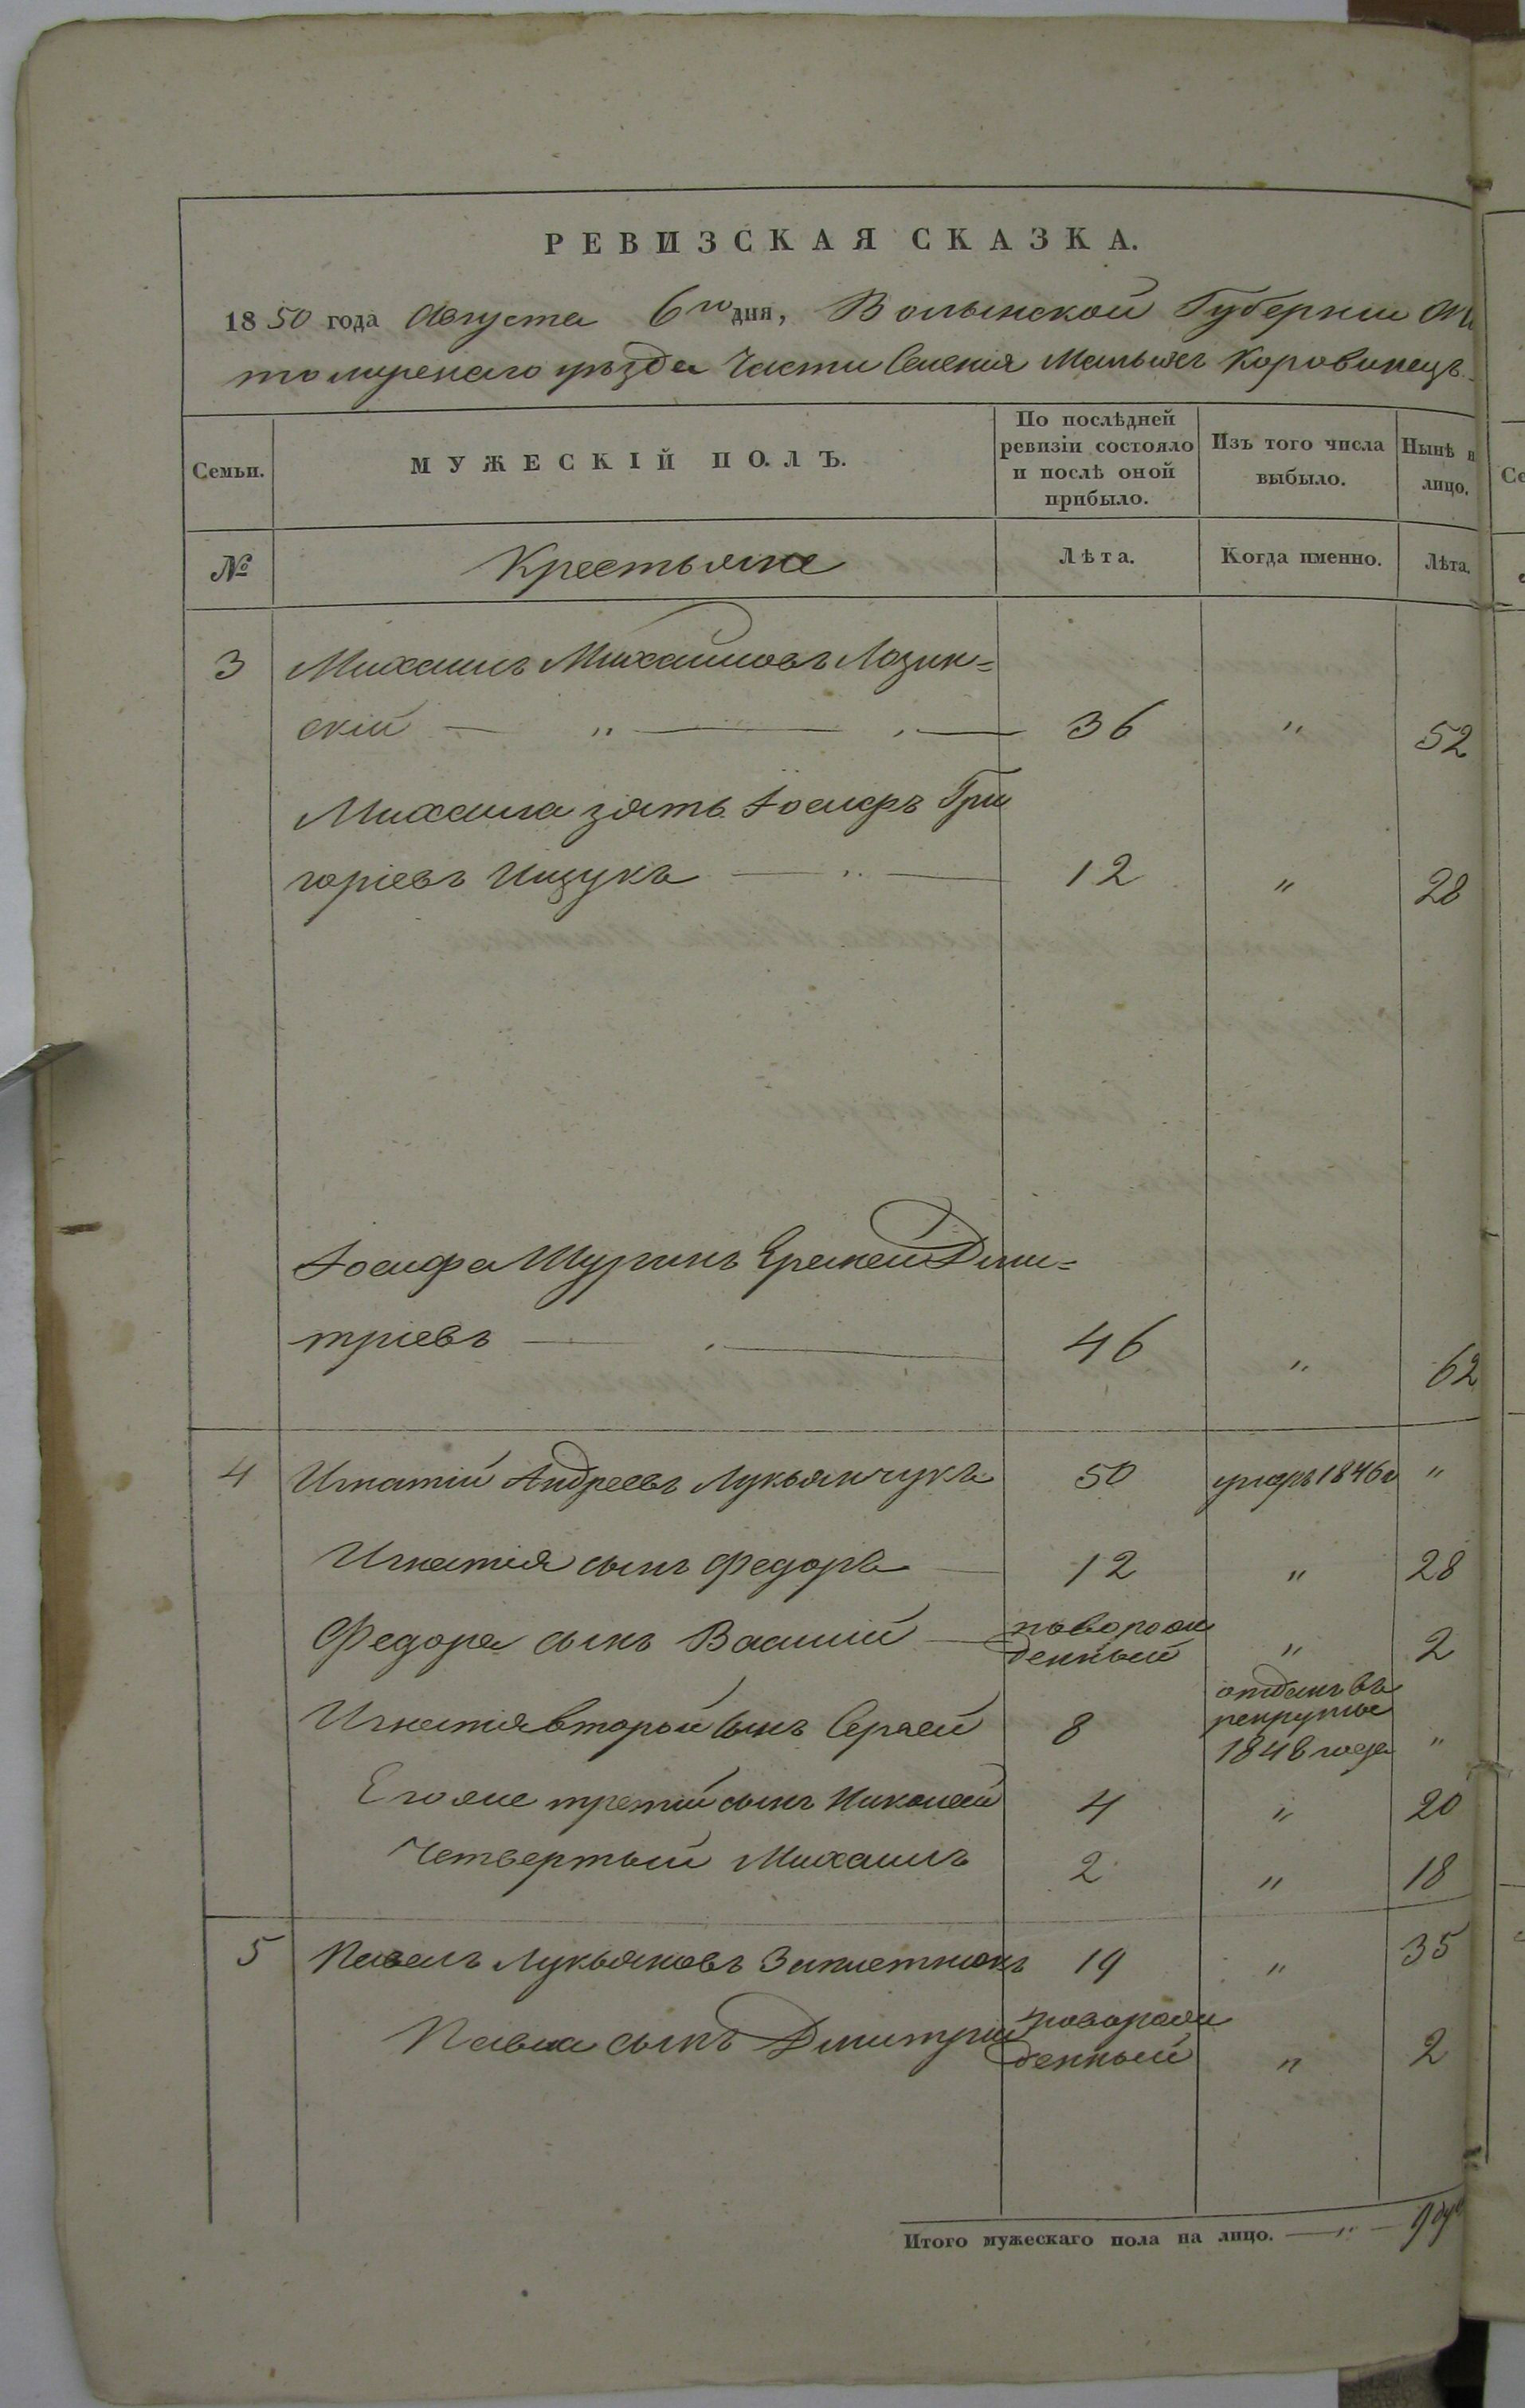 РЕВИЗСКАЯ СКАЗКА.
1850 года Августа 6го дня, Волынской Губернии Жи
томирскаго уѣзда Части Селенія Малыхъ Коровинецъ
Семьи.
МУЖЕСКІЙ ПОЛЪ.
По послѣдней ревизіи состояло и послѣ оной прибыло.
Изъ того числа выбыло.
Нынѣ н лицо.
№
Крестьяне
Лѣта.
Когда именно.
Лѣта.
3 Михаилъ Михайловъ Лозин=
скій — " — 36 " 52
Михаила зять Іосифъ Гри
горіевъ Ищукъ — " — 12 " 28
Іосифа Шуринъ Еремей Дми=
тріевъ — 46 " 62
4 Игнатій Андреевъ Лукьянчукъ 50 умеръ 1846г "
Игнатія сынъ Федоръ — 12 " 28
Федора сынъ Василій — новорож
денный " 2
Игнатія второй сынъ Сергей 8 отданъ въ
рекруты
1848 года "
Его же третій сынъ Николай 4 " 20
Четвертый Михаилъ 2 " 18
5 Павелъ Лукьяновъ 19 " 35
Павла сынъ Дмитрій новорож
денный " 2
Итого мужескаго пола на лицо. — " — 9